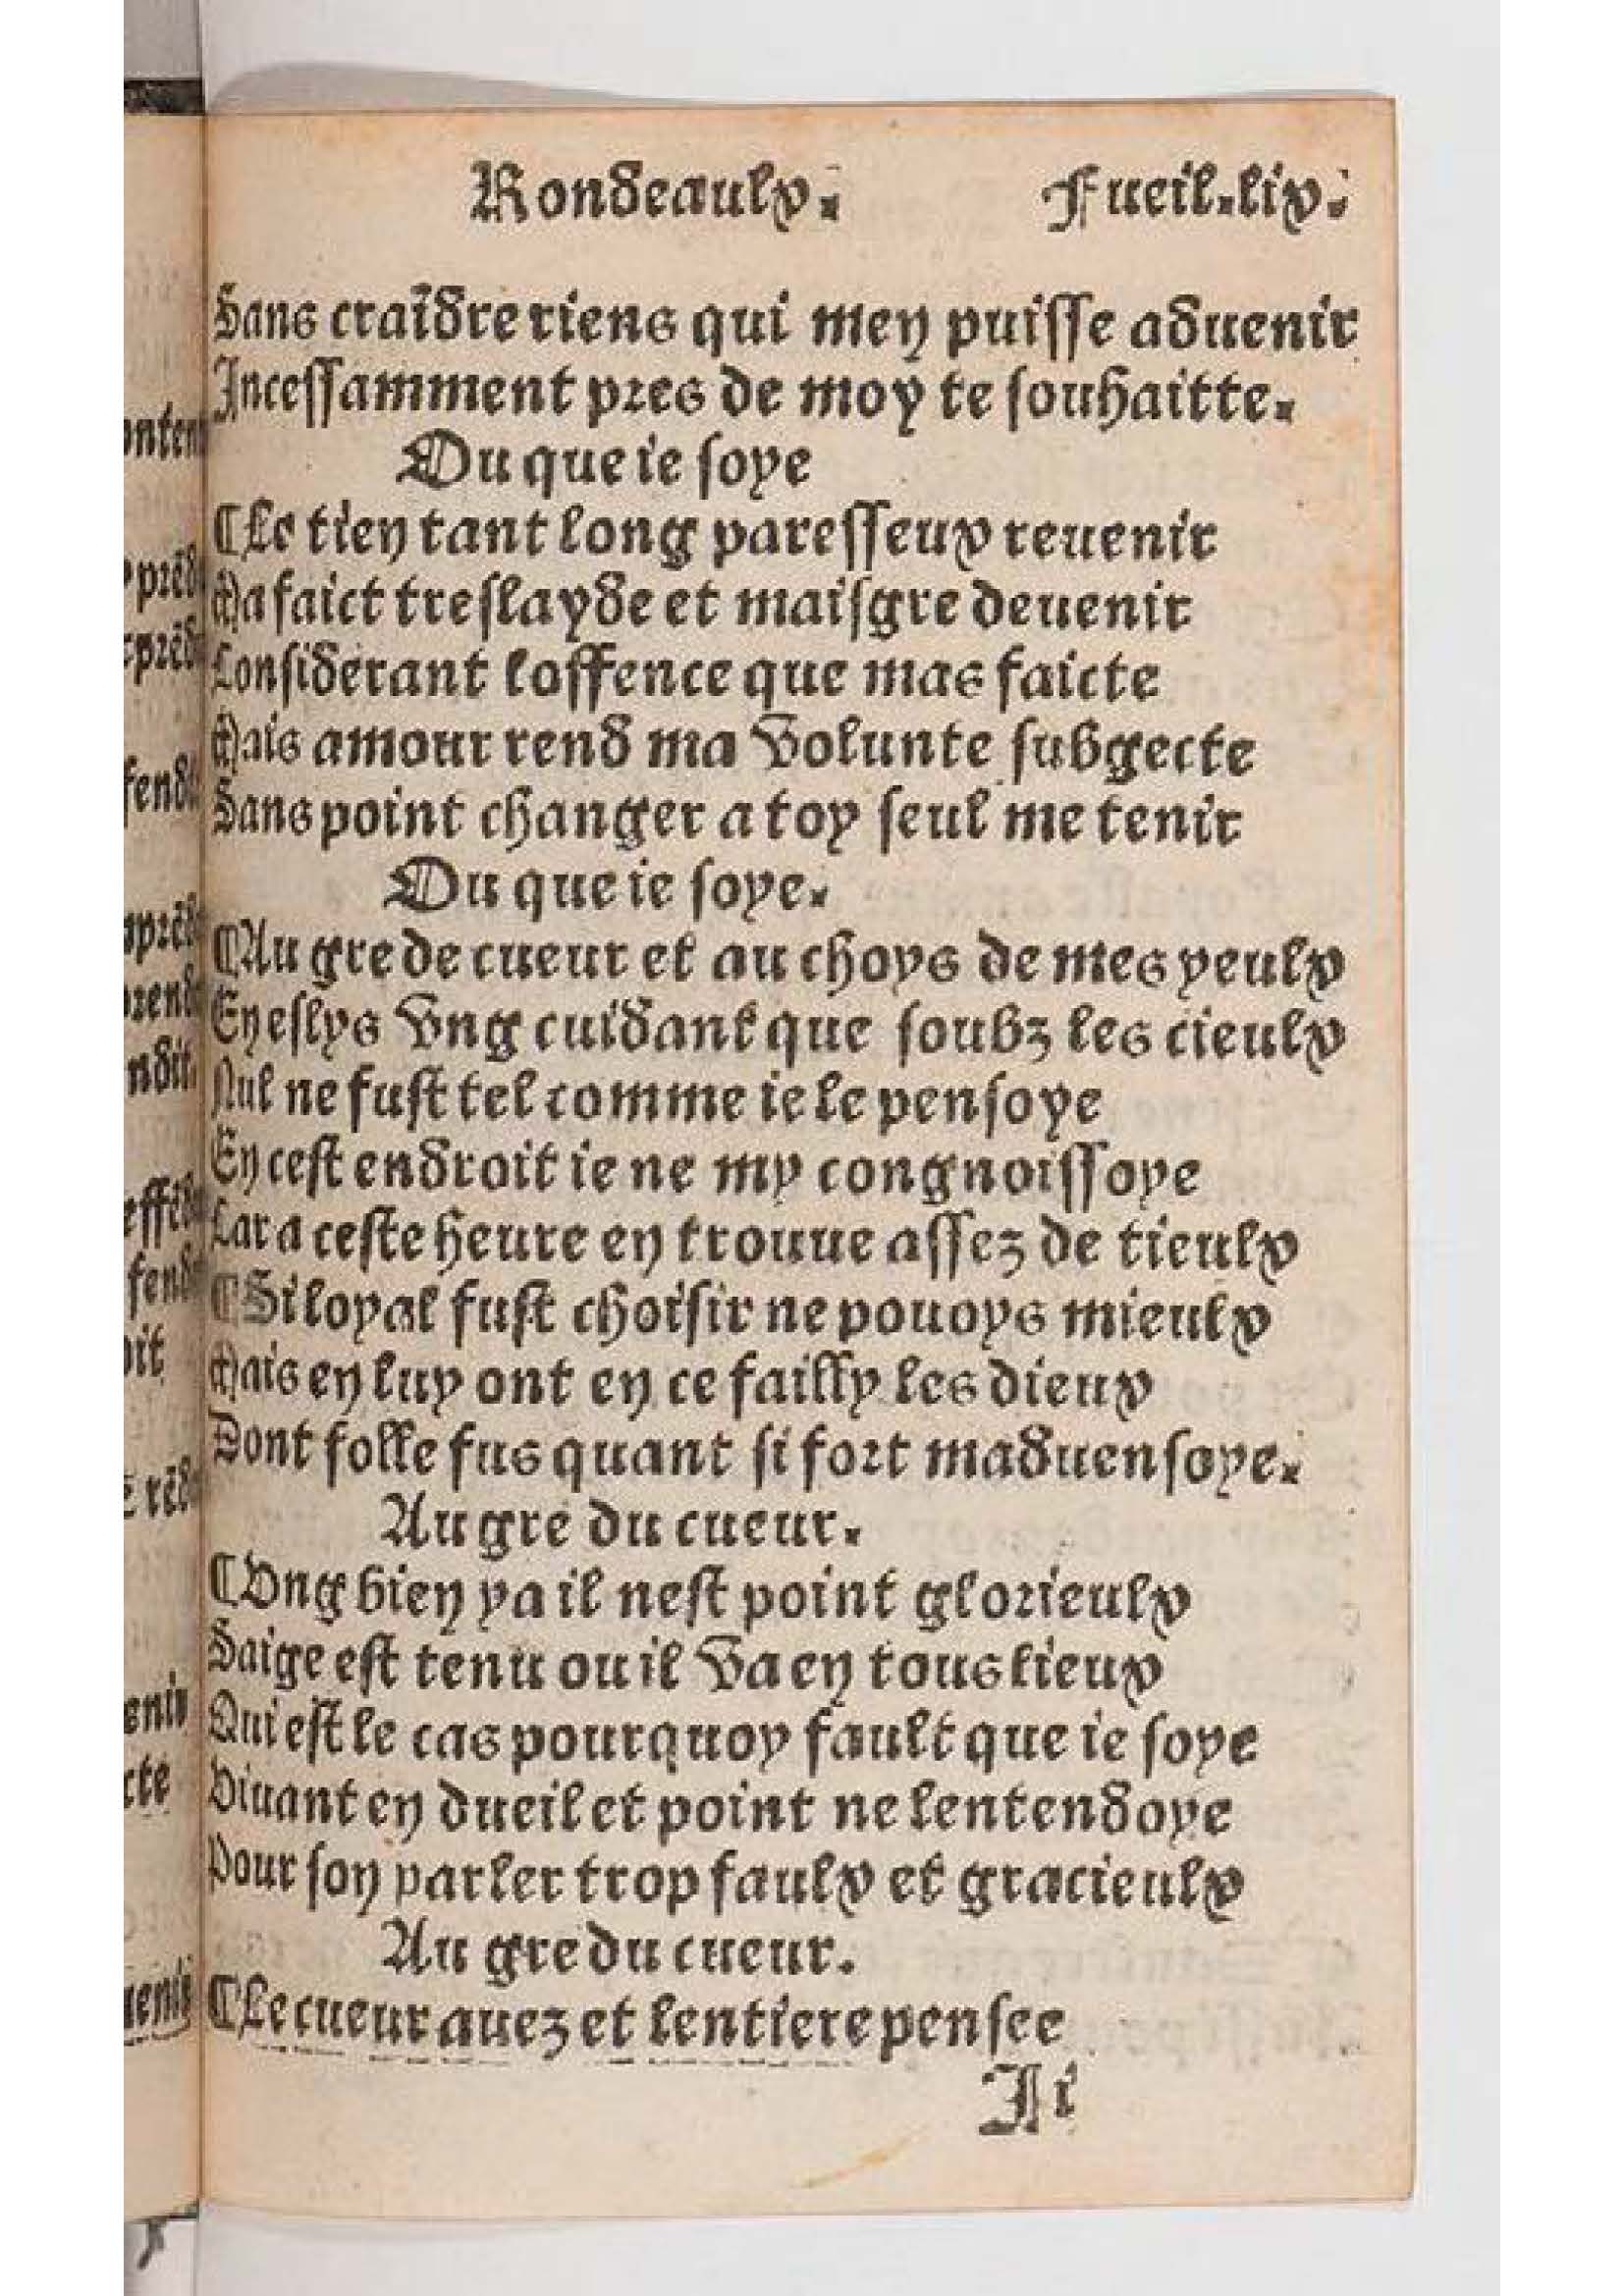 Rondeaulx. Fueil.lix.
Sans craīdre riens qui men puisse aduenir
Incessamment pres de moy te souhaitte.
Ou que ie soye
¶Le tien tant long paresseux reuenir
Ma faict treslayde et maisgre deuenir
Considerant loffence que mas faicte
Mais amour rend ma volunte subgecte
Sans point changer a toy seul me tenir
Ou que ie soye.
¶Au gre de cueur et au choys de mes yeulx
En eslys vng cuidant que soubz les cieulx
Nul ne fust tel comme ie le pensoye
En cest endroit ie ne my congnoissoye
Car a ceste heure en trouue assez de tieulx
¶Si loyal fust choisir ne pouoys mieulx
Mais en luy ont en ce failly les dieux
Dont folle fus quant si fort maduensoye.
Au gre du cueur.
¶Vng bien ya il nest point glorieulx
Saige est tenu ou il va en tous lieux
Qui est le cas pourquoy fault que ie soye
Viuant en dueil et point ne lentendoye
Pour son parler trop faulx et gracieulx
Au gre du cueur.
¶Le cueur auez et lentiere pensee
Ii